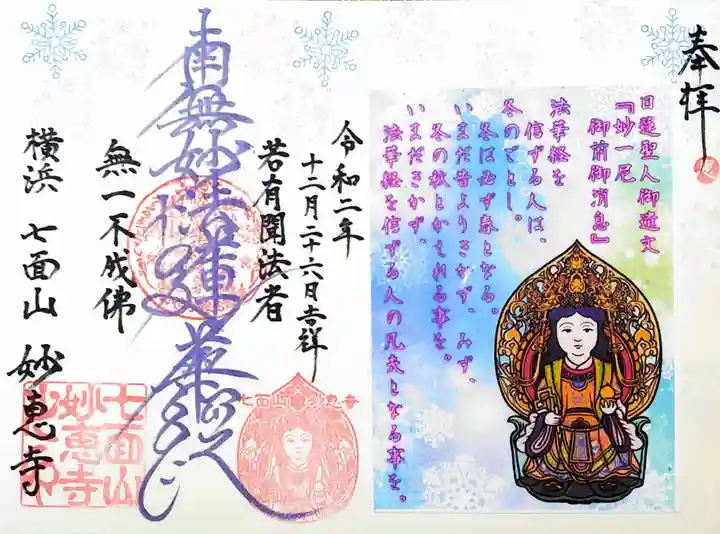 奉拝
日蓮聖人御遺文
『妙一尼
御前御消息』
法華経を
信ずる人は、
冬のごとし。
冬は必ず春となる。
いまだ昔よりきかず、みず、
冬の秋とかえれる事を。
いまだきかず、
法華経を信ずる人の凡夫となる事を。
令和二年
十二月二十六日吉祥
若有聞法者
南無妙法蓮華経
無一不成佛
横浜 七面山 妙恵寺
七面山妙恵寺
七面山
妙恵寺